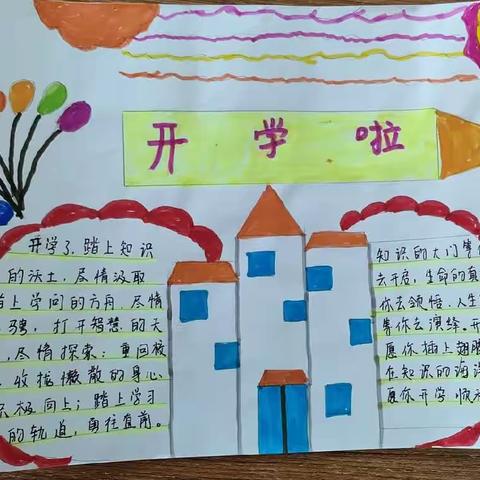 开学啦
开学了,踏上知识
的沃土,尽情汲取
踏上学问的方舟,尽情
骋,打开智慧的天
,尽情探索;重回校
,收拢懒散的身心
极向上;踏上学习
的轨道,勇往直前。
知识的大门等你
去开启,生命的真
你去领悟,人生
等你去演绎。开
愿你插上翅膀
在知识的海洋
愿你开学顺